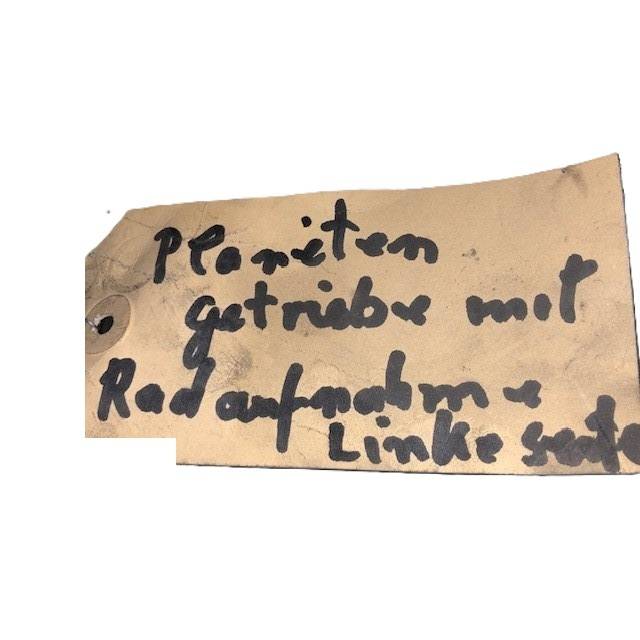 Planeten
getriebe mit
Radaufnahme
Linke seite